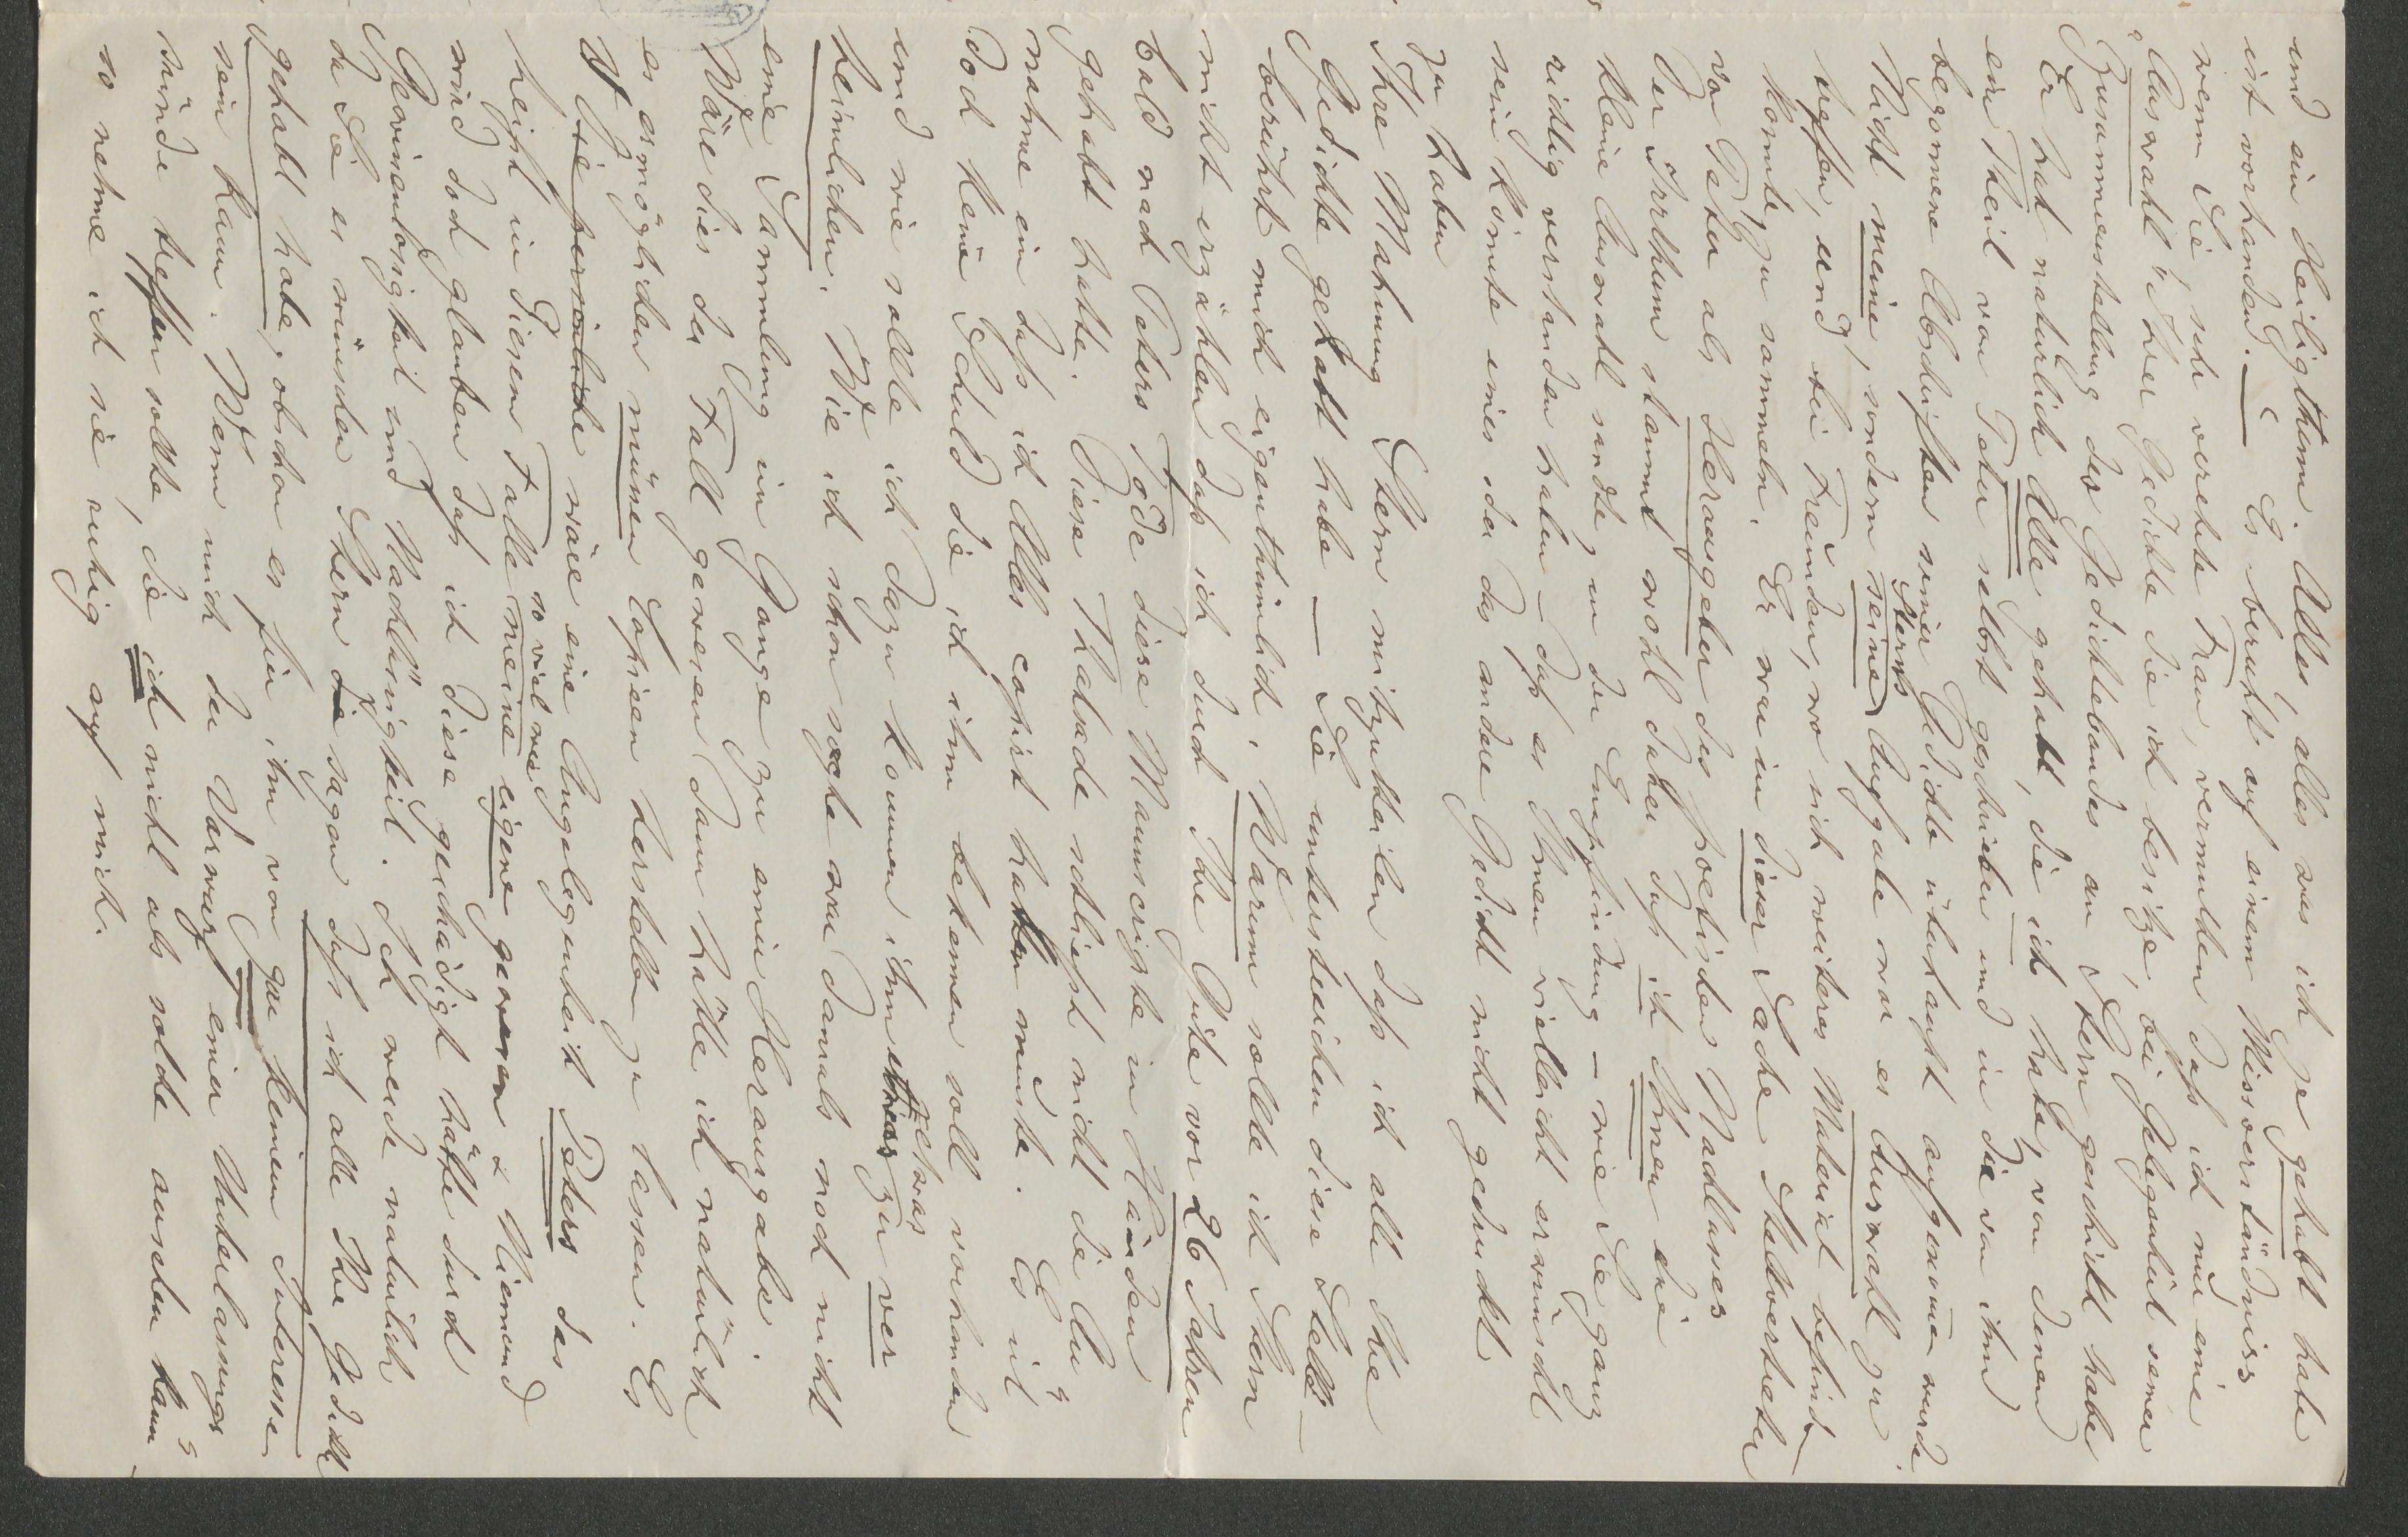 und ein Heiligthum. Alles, alles was ich je gehabt habe
ist vorhanden. — Es beruht auf einem Missverständniss
wenn Sie, sehr verehrte Frau, vermuthen dass ich nur eine
„Auswahl" ihrer Gedichte die ich besitze, bei Gelegenheit seiner
Zusammenstellung des Gedichtebandes an Stern geschickt habe
Er hat natürlich Alle gehabt, die ich habe, von denen
ein Theil von Peter selbst geschrieben und in die von ihm
begonnene Abschriften seiner Gedichte überhaupt aufgenomen wurde.
Nicht meine, sondern seine Aufgabe war es Auswahl zu
Sterns
treffen, und bei Freunden, wo sich weiteres Material befinden
könnte, zu sammeln. Er war in dieser Sache Stellvertreter
von Peter als Herausgeber des poetischen Nachlasses
Der Irrthum stammt wohl daher dass ich Ihnen die
kleine Auswahl sandte, in der Empfindung – wie Sie ganz
richtig verstanden haben – dass es Ihnen vielleicht erwünscht
sein könnte eines oder das andere Gedicht nicht gedruckt
zu haben
Ihre Mahnung Stern mitzutheilen dass ich alle Ihre
Gedichte gehabt habe — Sie unterstreichen diese Stelle —
berührt mich eigenthümlich. Warum sollte ich Stern
nicht erzählen dass ich durch Ihre Güte vor 26 Jahren
bald nach Peters Tode diese Manuscripte in Händen
gehabt hatte. Diese Thatsache schliesst nicht die An
nahme ein dass ich Alles copirt haben müsste. Es ist
doch keine Schuld die ich ihm bekennen soll vorhanden
und wie sollte ich dazu kommen ihm etwas zu ver
etwas
heimlichen. Wie ich schon sagte war damals noch nicht
eine Sammlung im Gange zu einer Herausgabe.
Wäre dies der Fall gewesen dann hätte ich natürlich
es ermöglichen müssen Copieen herstellen zu lassen. Es
die persönliche wäre eine Angelegenheit Peters das
heisst in diesem Falle meine eigene gewesen & Niemand
so viel wie
wird doch glauben dass ich diese geschädigt hätte durch
Gewissenlosigkeit und Nachlässigkeit. Ich werde natürlich
da Sie es wünschen Stern die sagen dass ich alle Ihre Gedichte
gehabt habe, obschon es für ihn von gar keinem Interesse
sein kann. Wenn mich der Vorwurf einer Unterlassungs
sünde treffen sollte, die ich nicht als solche ansehen kann,
so nehme ich sie ruhig auf mich.